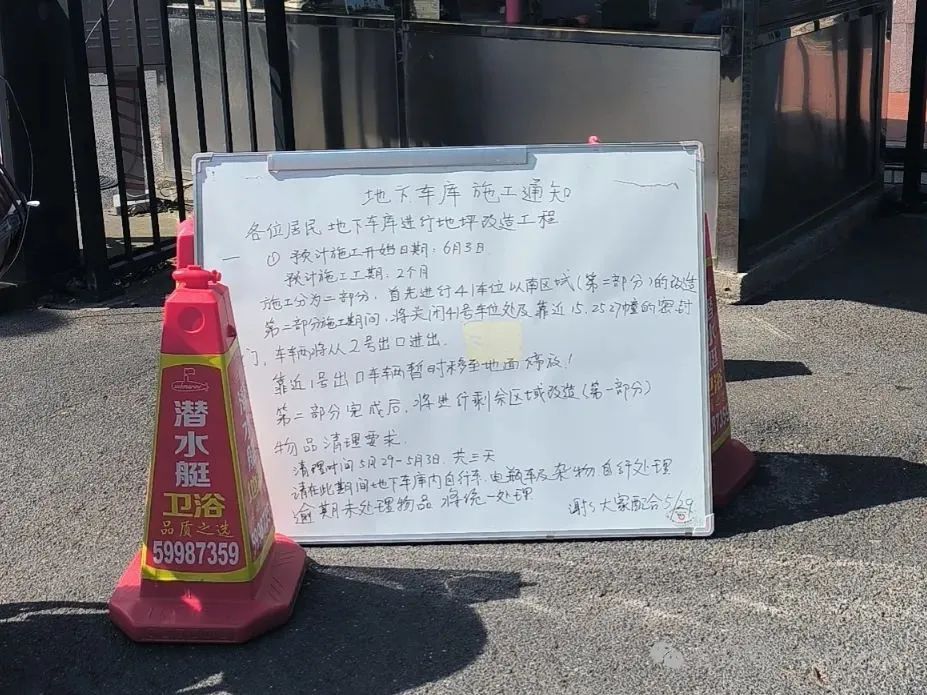 地下车库施工通知
各位居民 地下车库进行地坪改造工程
① 预计施工开始日期：6月3日
预计施工工期：2个月
施工分为二部分，首先进行41车位以南区域（第二部分）的改造
第二部分施工期间，将关闭41号车位处及靠近15.25.27幢的密封
门，车辆将从2号出口进出.
靠近1号出口车辆暂时移至地面停放！
第二部分完成后，将进行剩余区域改造（第一部分）
物品清理要求.
清理时间5月29-5月3日.共三天
请在此期间地下车库内自行车.电瓶车及杂物自行处理
逾期未处理物品 将统一处理
谢谢大家配合5/29
submarine
潜水艇
卫浴
品质之选
59987359